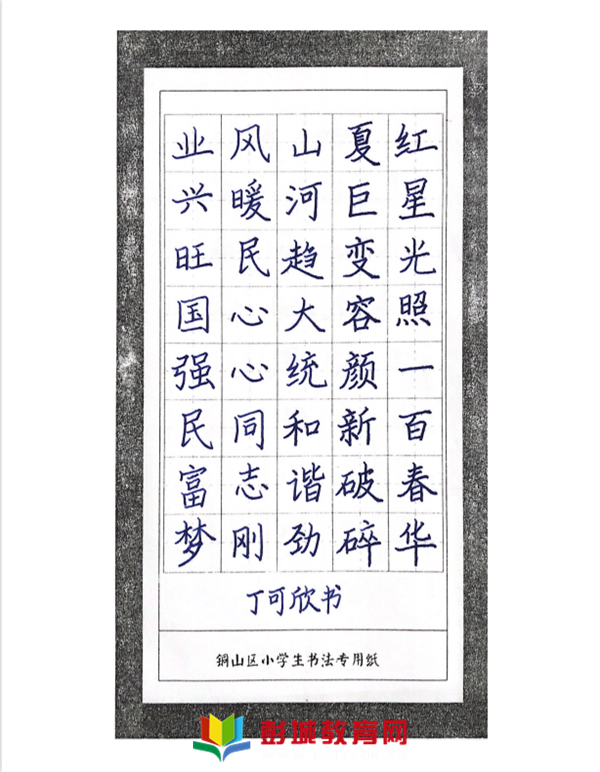 红星光照一百春华
夏巨变容颜新破碎
山河趋大统和谐劲
风暖民心心同志刚
业兴旺国强民富梦
丁可欣书
铜山区小学生书法专用纸
彭城教育网